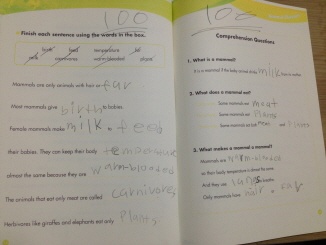 100
Finish each sentence using the words in the box.
birth heat temperature fur
milk carnivores warm-blooded plants
Mammals are only animals with hair or fur
Most mammals give birth to babies.
Female mammals make milk to feed
their babies. They can keep their body temperature
almost the same because they are warm-blooded
The animals that eat only meat are called carnivores
Herbivores like giraffes and elephants eat only plants
100
Comprehension Questions
1. What is a mammal?
It is a mammal if the baby animal drinks milk from its mother.
2. What does a mammal eat?
Some mammals eat meat
Some mammals eat plants
Some mammals eat both meat and plants
3. What makes a mammal a mammal?
Mammals are warm-blooded
so their body temperature is almost the same.
And they use lungs to breathe.
Only mammals have hair or fur